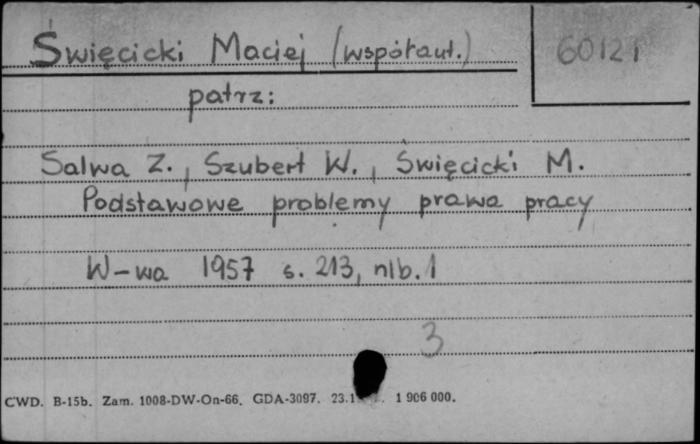 Święcicki Maciej (współaut.) 60121
patrz:
Salwa Z., Szubert W., Święcicki M.
Podstawowe problemy prawa pracy
W-wa 1957 s. 213, nlb. 1
3
CWD. B-15b. Zam. 1008-DW-On-66. GDA-3097. 23.1 1 906 000.